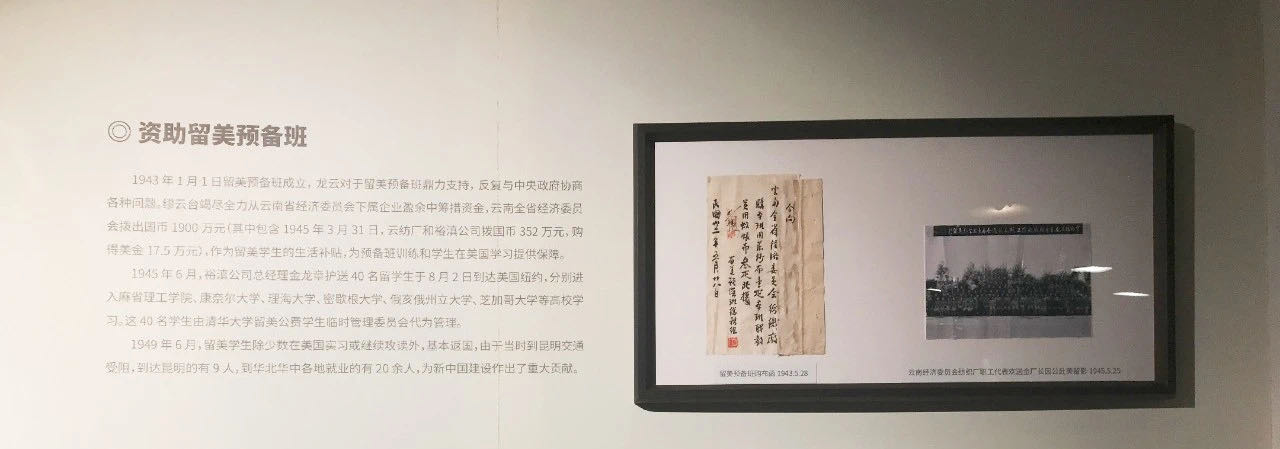 资助留美预备班
1943 年 1 月 1 日留美预备班成立，龙云对于留美预备班鼎力支持，反复与中央政府协商
各种问题。缪云台竭尽全力从云南省经济委员会下属企业盈余中筹措资金，云南全省经济委员
会拨出国币 1900 万元(其中包含 1945 年 3 月 31 日，云纺厂和裕滇公司拨国币 352 万元，购
得美金 17.5 万元)，作为留美学生的生活补贴，为预备班训练和学生在美国学习提供保障。
1945 年 6 月，裕滇公司总经理金龙章护送 40 名留学生于 8 月 2 日到达美国纽约，分别进
入麻省理工学院、康奈尔大学、理海大学、密歇根大学、俄亥俄州立大学、芝加哥大学等高校学
习。这 40 名学生由清华大学留美公费学生临时管理委员会代为管理。
1949 年 6 月，留美学生除少数在美国实习或继续攻读外，基本返国，由于当时到昆明交通
受阻，到达昆明的有 9 人，到华北华中各地就业的有 20 余人，为新中国建设作出了重大贡献。
云南全省经济委员会
留美预备班购布函 1943.5.28
云南经济委员会纺织厂职工代表欢送金厂长因公赴美留影 1945.5.25